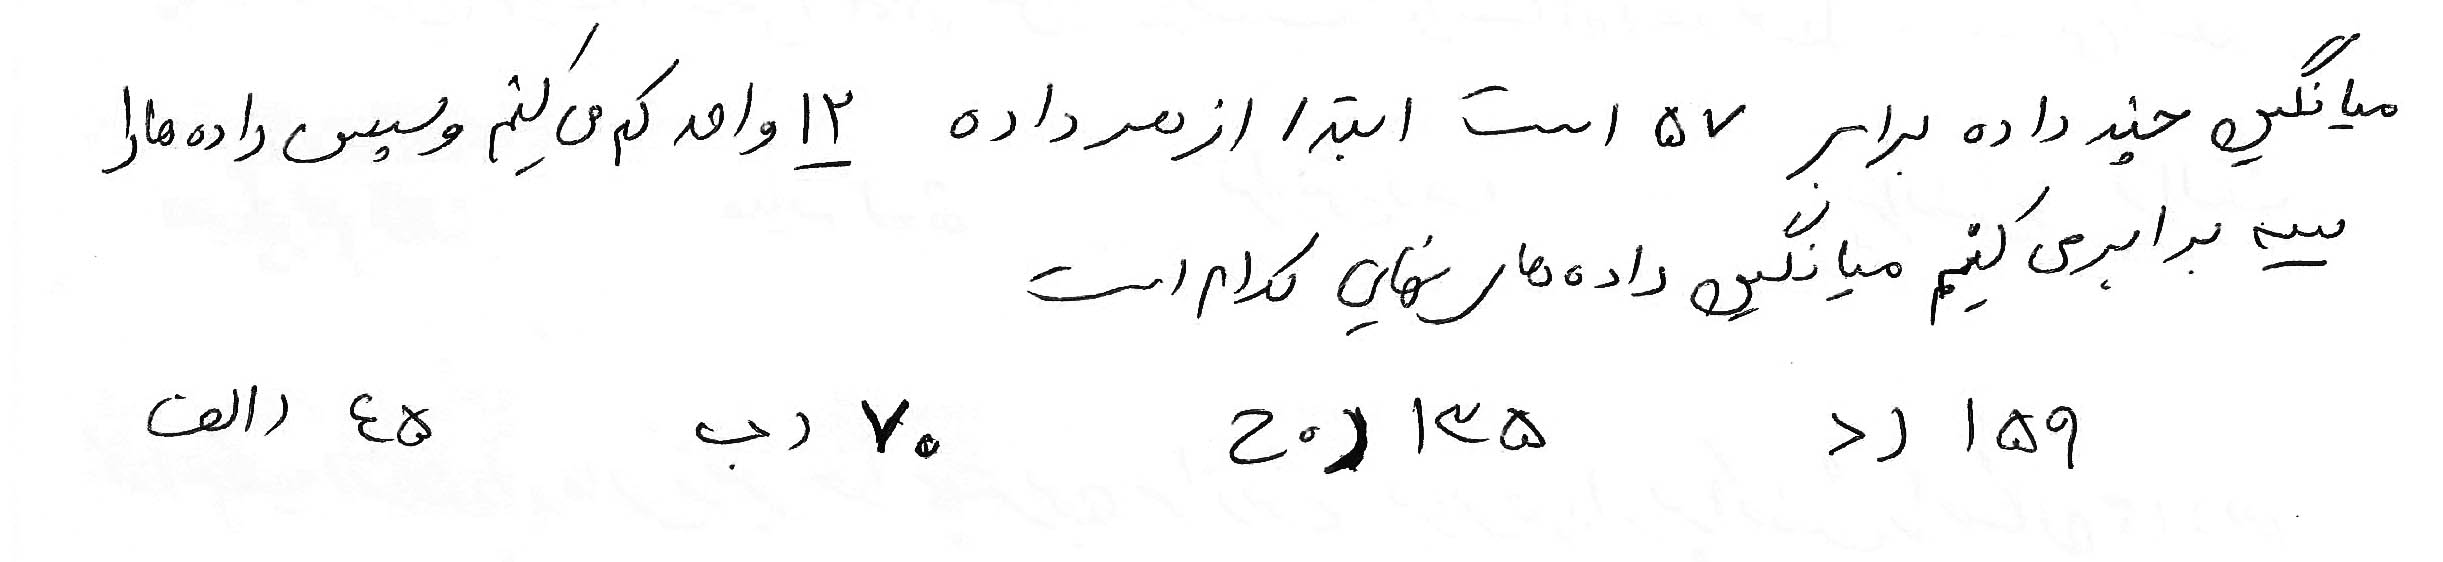 میانگین چند داده برابر ۵۷ است ابتدا از هر داده ۱۲ واحد کم می کنیم و سپس داده ها را
سه برابر می کنیم میانگین داده های نهایی کدام است
۱۵۹ (د ۱۳۵ (ج ۷۰ (ب ۴۵ (الف